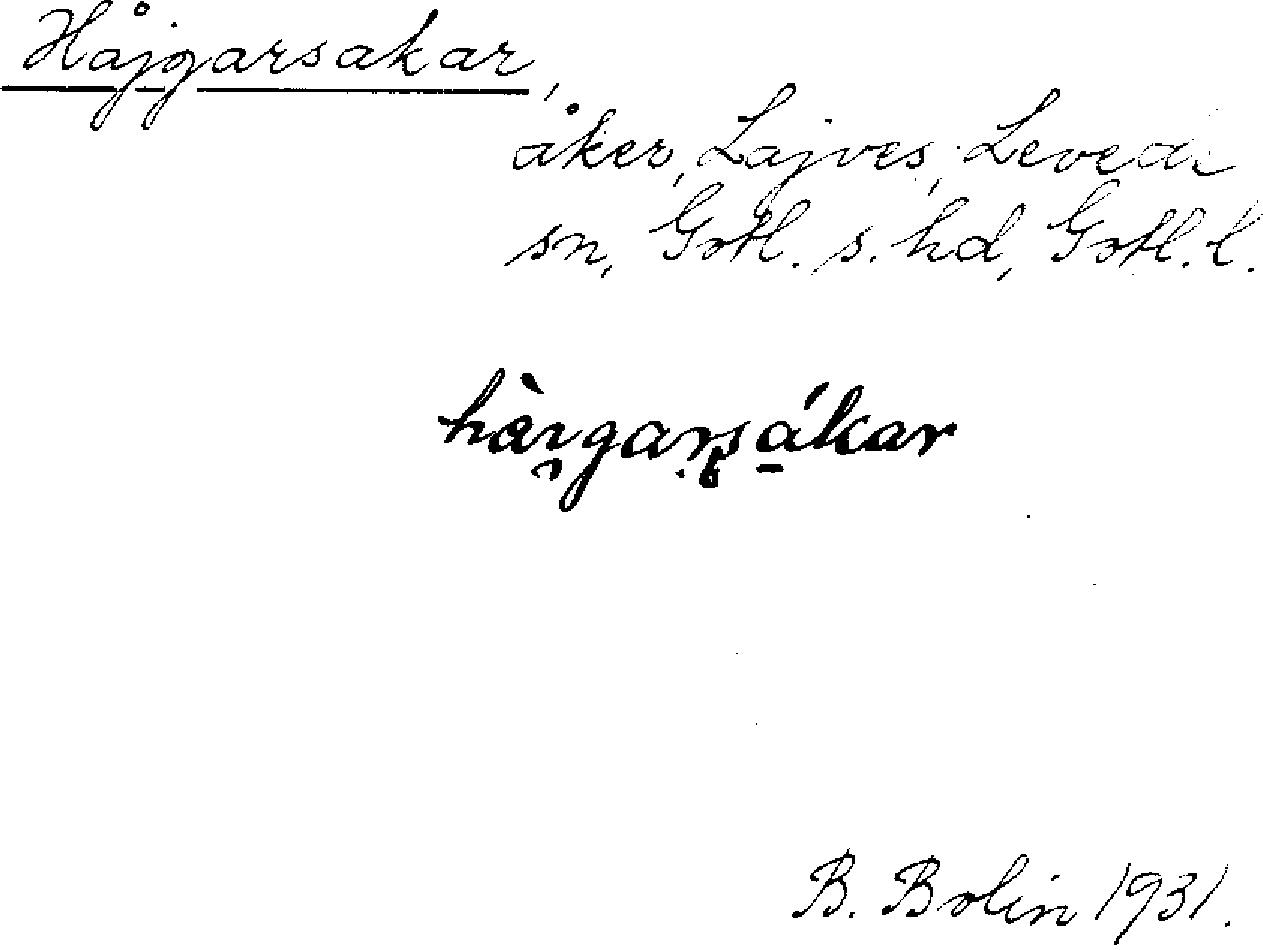 Håjgarsakar,
åker, Lajves, Levede
sn, Gotl. s. hd, Gotl. l.
hàrgarsákar
B. Bolin 1931.